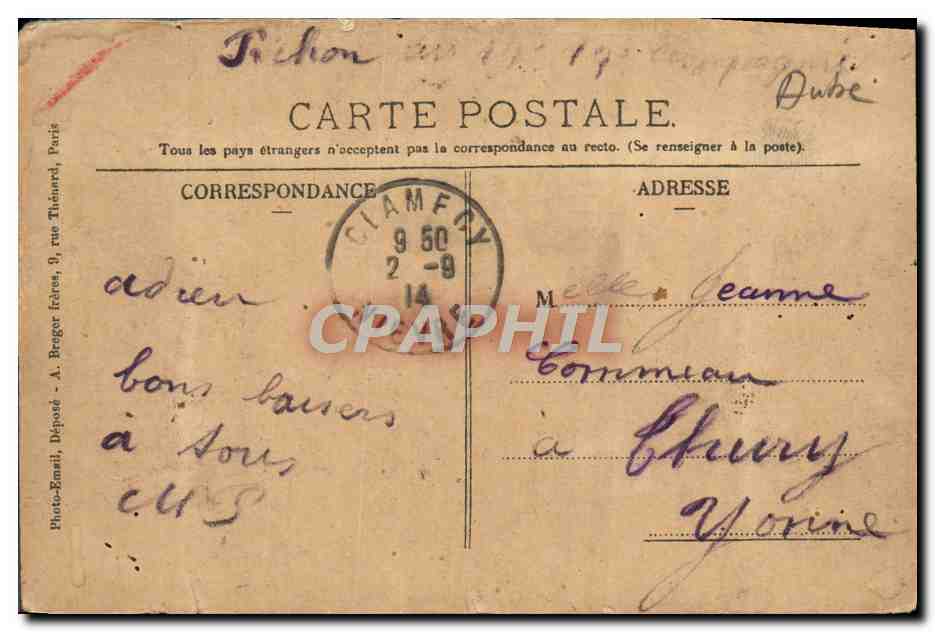 Pichon au 19e compagnie
Aubé
CARTE POSTALE.
Tous les pays étrangers n'acceptent pas la correspondance au recto. (Se renseigner à la poste).
CORRESPONDANCE
ADRESSE
CLAMECY
9 50
2 -9
14
NIEVRE
CPAPHIL
adieu
bons baisers
à tous
Melle Jeanne
Commeau
à Thury
Yonne
Photo-Email, Déposé - A. Breger frères, 9, rue Thénard, Paris